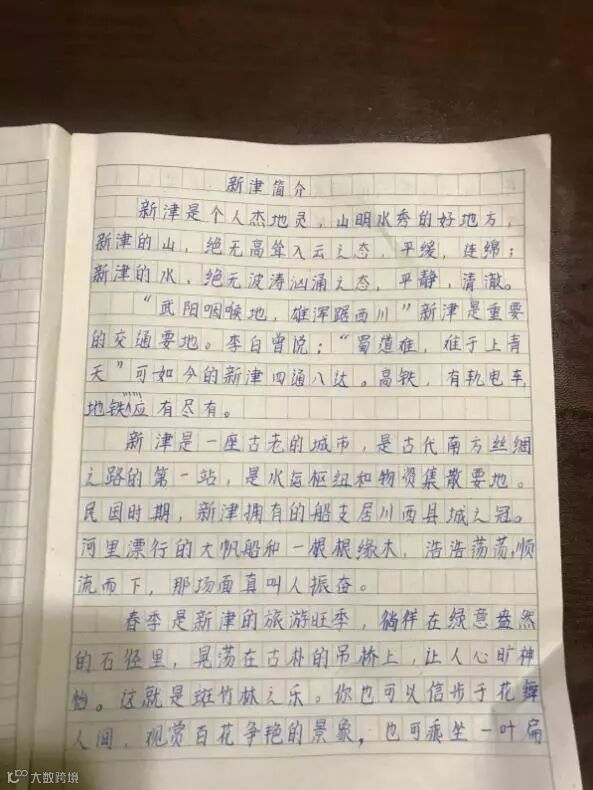 新津简介
新津是个人杰地灵，山明水秀的好地方，
新津的山，绝无高耸入云之态，平缓，连绵；
新津的水，绝无波涛汹涌之态，平静，清澈。
“武阳咽喉地，雄浑踞西川”新津是重要
的交通要地。李白曾说：“蜀道难，难于上青
天”可如今的新津四通八达。高铁，有轨电车，
地铁应有尽有。
新津是一座古老的城市，是古代南方丝绸
之路的第一站，是水运枢纽和物资集散要地。
民国时期，新津拥有的船支居川西县城之冠。
河里漂行的大帆船和一根根缘木，浩浩荡荡，顺
流而下，那场面真叫人振奋。
春季是新津的旅游旺季，徜徉在绿意盎然
的石径里，晃荡在古朴的吊桥上，让人心旷神
怡。这就是斑竹林之乐。你也可以信步于花舞
人间，观赏百花争艳的景象，也可乘坐一叶扁
大数跨境